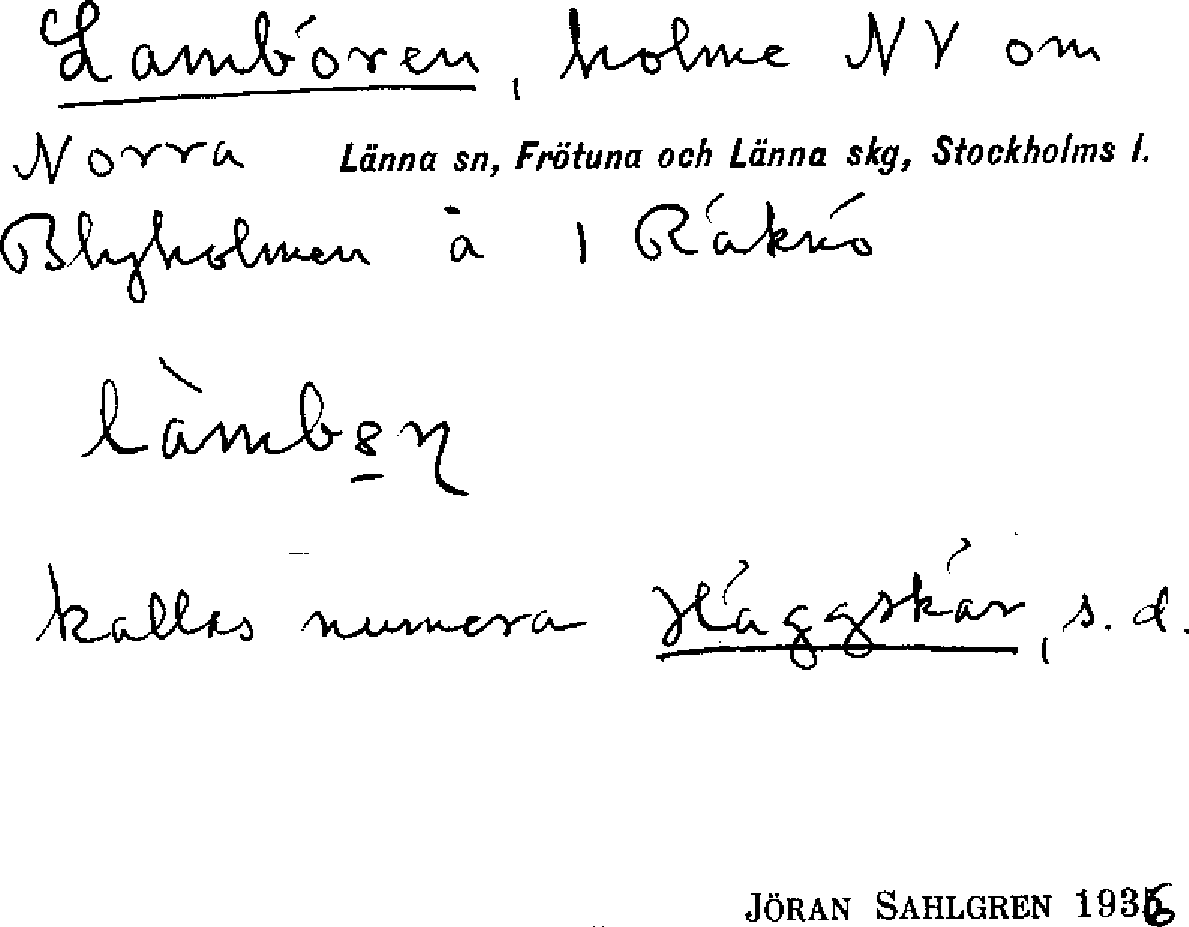 Lambören, holme NV om
Norra Länna sn, Frötuna och Länna skg, Stockholms l.
Blyholmen å 1 Räknö
làmbən
kallas numera Häggskär, s. d.
JÖRAN SAHLGREN 1936